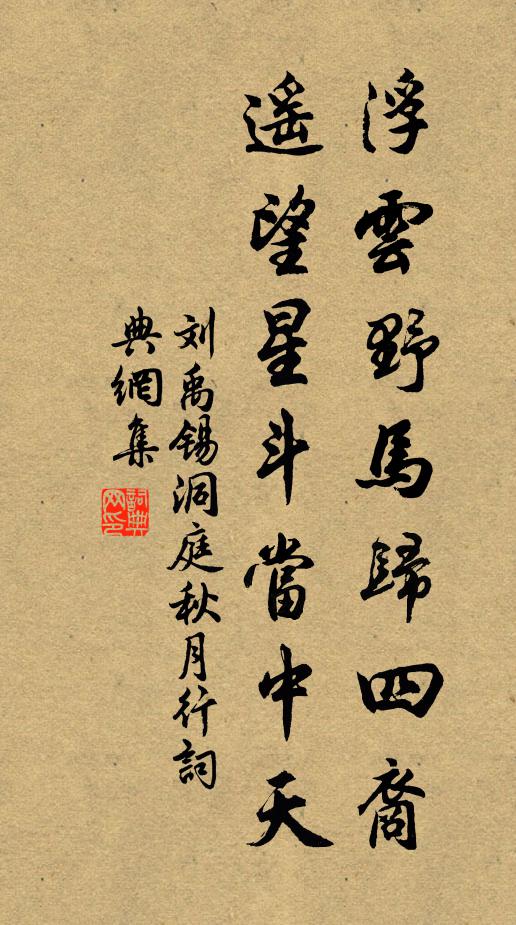 浮雲野馬歸四裔
遥望星斗當中天
刘禹锡洞庭秋月行詞
典網集
詞典
网印